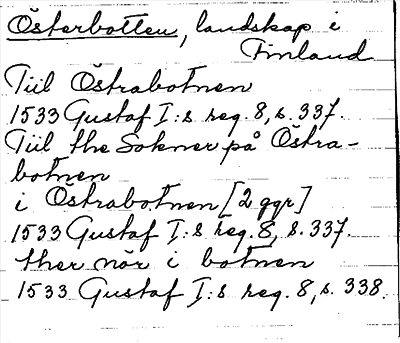 Österbotten, landskap i
Finland
Till Östrabotnen
1533 Gustaf I:s reg. 8, s. 337.
Till the Sokner på Östra-
botnen
i Östrabotnen [2 ggr]
1533 Gustaf I:s reg. 8, s. 337.
ther nör i botnen
1533 Gustaf I:s reg. 8, s. 338.